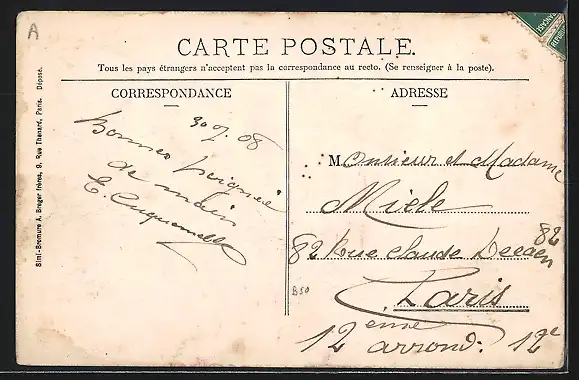 A
CARTE POSTALE.
Tous les pays étrangers n'acceptent pas la correspondance au recto. (Se renseigner à la poste).
CORRESPONDANCE
30 9. 08
Bonnes poignée
de main
E.
Simi-Bromure A. Breger frères, 9, Rue Thénard, Paris. Déposé.
ADRESSE
Monsieur et Madame
Miele
82 Rue Claude Decaen 82
Paris
12 ème arrond: 12e
B50